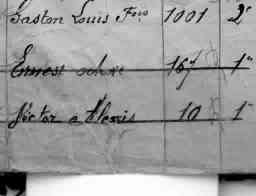 Gaston Louis Fcois 1001 2e
Ernest 167 1e
Victor Alexis 10 1e